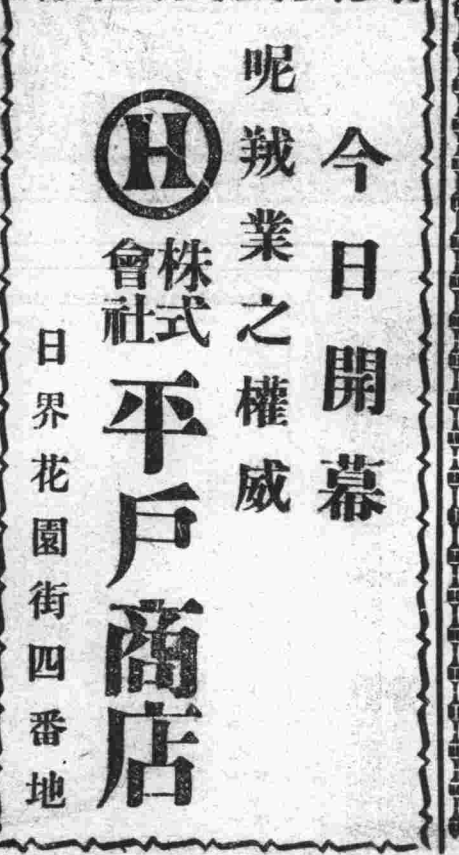 今日開幕
呢羢業之權威
H
株式會社平戶商店
日界花園街四番地